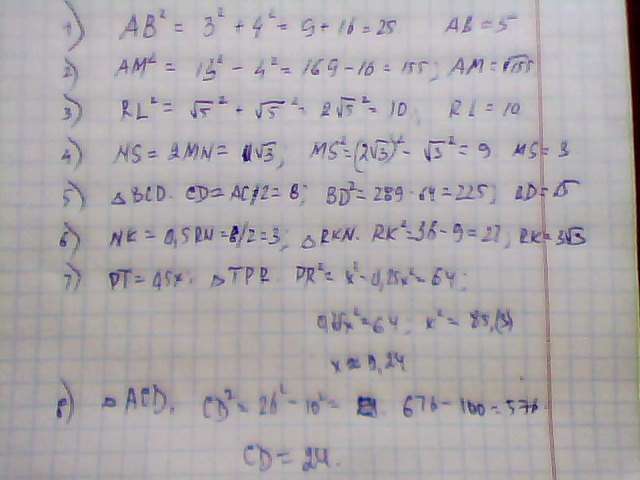 1) AB² = 3² + 4² = 9 + 16 = 25 AB = 5
2) AM² = 13² - 4² = 169 - 16 = 155; AM = √155
3) RL² = √5² + √5² = 2√5² = 10; RL = 10
4) NS = 2MN = √3; MS² = (2√3)² - √3² = 9 MS = 3
5) △BCD. CD = AC/2 = 8; BD² = 289 - 64 = 225; BD = 15
6) NK = 0,5RN = 6/2 = 3; △RKN. RK² = 36 - 9 = 27; RK = 3√3
7) PT = 0,5x; △TPR. PR² = x² - 0,25x² = 64;
0,75x² = 64; x² = 85,(3)
x ≈ 9,24
8) △ACD. CD² = 26² - 10² = 676 - 100 = 576.
CD = 24.